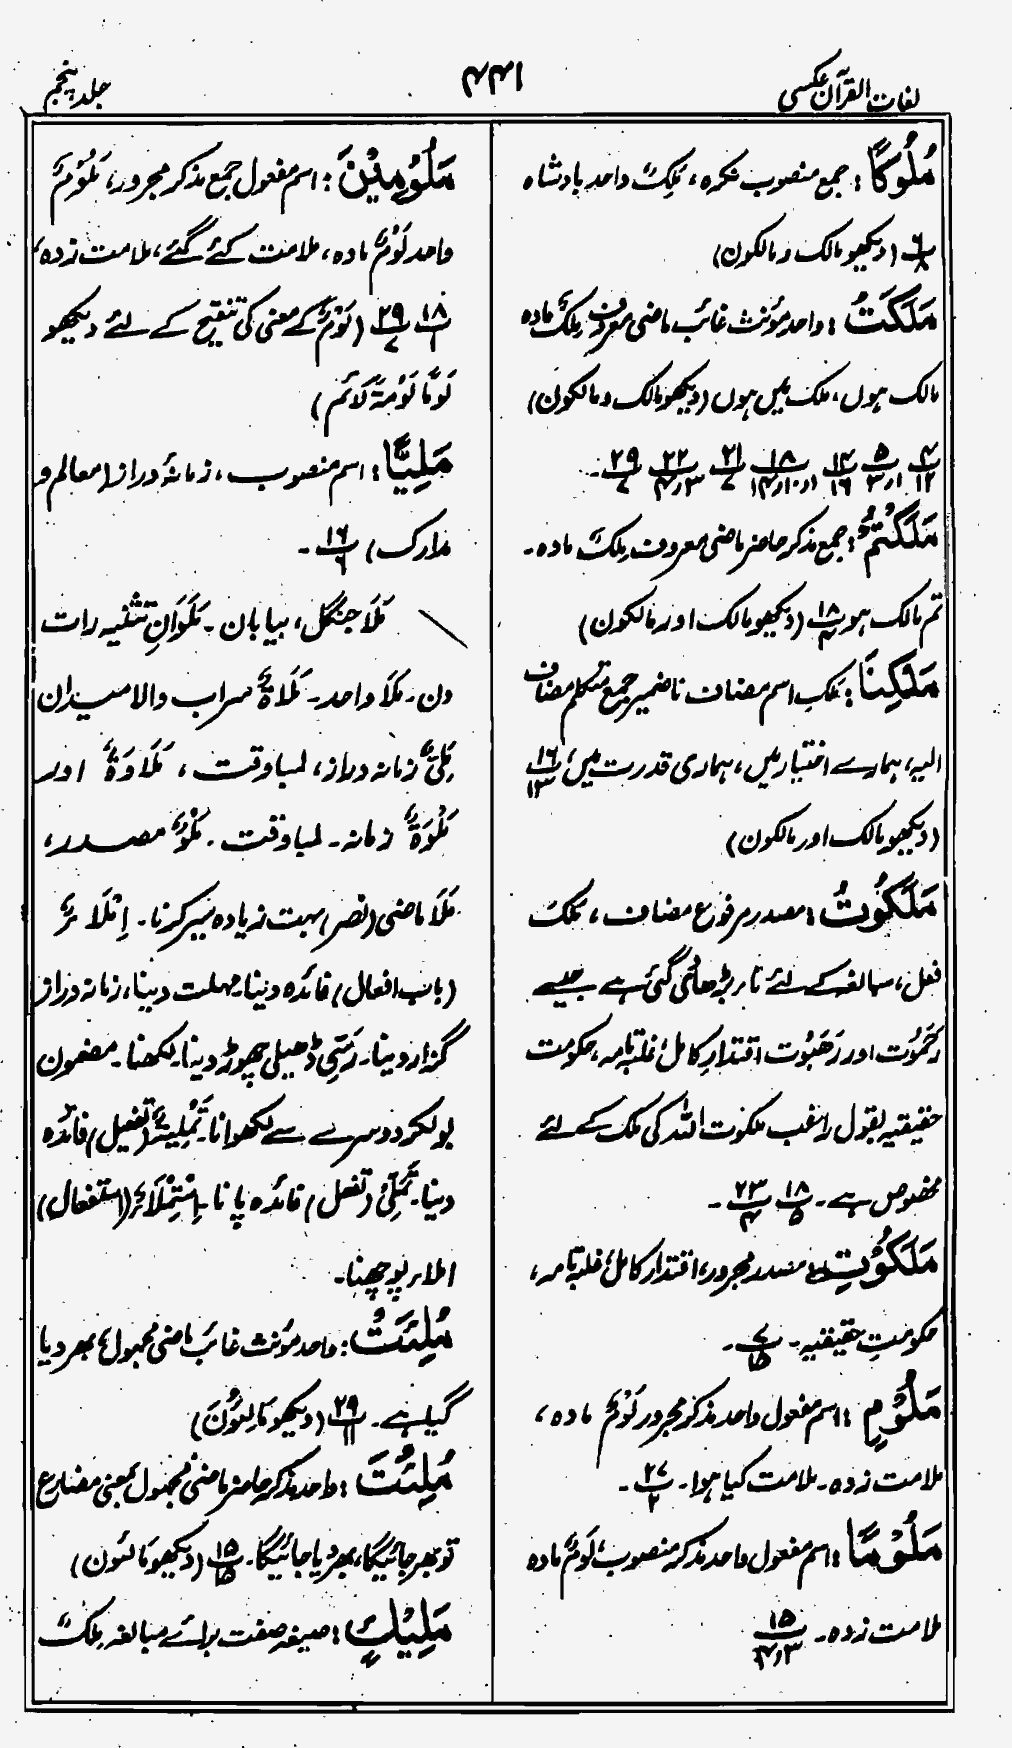 لغات القرآن عکسی
۴۴۱
جلد پنجم
مُلُوکًا : جمع منصوب نکرہ، مَلِکٌ واحد بادشاہ
۶/۸ (دیکھو مالک و مالکون)
مَلَکَتْ : واحد مؤنث غائب ماضی معروف مِلْکٌ مادہ
مالک ہوں، ملک میں ہوں (دیکھو مالک و مالکون)
۴/۱۲ ۵/۱ار۳ ۱۴/۱۶ ۱۸/۱ر۱۰ار۱۴ ۲۱/۷ ۲۲/۳ر۴ ۲۹/۷ ۔
مَلَکْتُمْ : جمع مذکر حاضر ماضی معروف مِلْکٌ مادہ ۔
تم مالک ہو ۱۸/۱۴ (دیکھو مالک اور مالکون)
مَلْکِنَا : مَلْکِ اسم مضاف نا ضمیر جمع متکلم مضاف
الیہ، ہمارے اختیار میں، ہماری قدرت میں، ۱۶/۱۳
(دیکھو مالک اور مالکون)
مَلَکُوْتُ : مصدر مرفوع مضاف، مَلَکَ
فعل، مبالغہ کے لئے تا بڑھائی گئی ہے جیسے
رَحَمُوْت اور رَھَبُوْت اقتدارِ کامل، غلبۂ تامہ، حکومت
حقیقیہ بقول راغب ملکوت اللہ کی ملک کے لئے
مخصوص ہے ۔ ۱۸/۵ ۲۳/۴ ۔
مَلَکُوْتِ : مصدر مجرور، اقتدار کامل، غلبۂ تامہ،
حکومتِ حقیقیہ ۔ ۷/۱۵ ۔
مَلُوْمٍ : اسم مفعول واحد مذکر مجرور لَوْمٌ مادہ،
ملامت زدہ ۔ ملامت کیا ہوا ۔ ۲۷/۲ ۔
مَلُوْمًا : اسم مفعول واحد مذکر منصوب، لَوْمٌ مادہ
ملامت زدہ ۔ ۱۵/۳ر۴
مَلُوْمِیْنَ : اسم مفعول جمع مذکر مجرور، مَلُوْمٌ
واحد لَوْمٌ مادہ، ملامت کئے گئے، ملامت زدہ،
۱۸/۱ ۲۹/۷ (لَوْمٌ کے معنی کی تنقیح کے لئے دیکھو
لَوْمًا لَوْمَۃَ لَائِم)
مَلِیًّا : اسم منصوب، زمانۂ دراز (معالم و
مدارک) ۱۶/۶ ۔
مَلَا جنگل، بیابان ۔ مَلَوَانِ تثنیہ رات
دن ۔ مَلَا واحد ۔ مَلَاۃٌ سراب والا میدان
مَلِیٌّ زمانہ دراز، لمبا وقت، مَلَاوَۃٌ اور
مَلْوَۃٌ زمانہ ۔ لمبا وقت ۔ مَلْوٌ مصدر،
مَلَا ماضی (نصر) بہت زیادہ سیر کرنا ۔ اِمْلَاءٌ
(باب افعال) فائدہ دینا، مہلت دینا، زمانہ دراز
گزار دینا ۔ رسّی ڈھیلی چھوڑ دینا ۔ لکھنا ۔ مضمون
بولکر دوسرے سے لکھوانا ۔ تَمْلِیَۃٌ (تفعیل) فائدہ
دینا ۔ تَمَلِّیْ (تفعل) فائدہ پانا ۔ اِسْتِمْلَاءٌ (استفعال)
املاء پوچھنا ۔
مُلِئَتْ : واحد مؤنث غائب ماضی مجہول، بھر دیا
گیا ہے ۔ ۲۹/۱۱ (دیکھو مَالِئُوْنَ)
مُلِئْتَ : واحد مذکر حاضر ماضی مجہول بمعنی مضارع
تو بھر جائیگا، بھر دیا جائیگا ۔ ۱۵/۱۵ (دیکھو مالئون)
مَلِیْکٍ : صیغہ صفت برائے مبالغہ مِلْکٌ